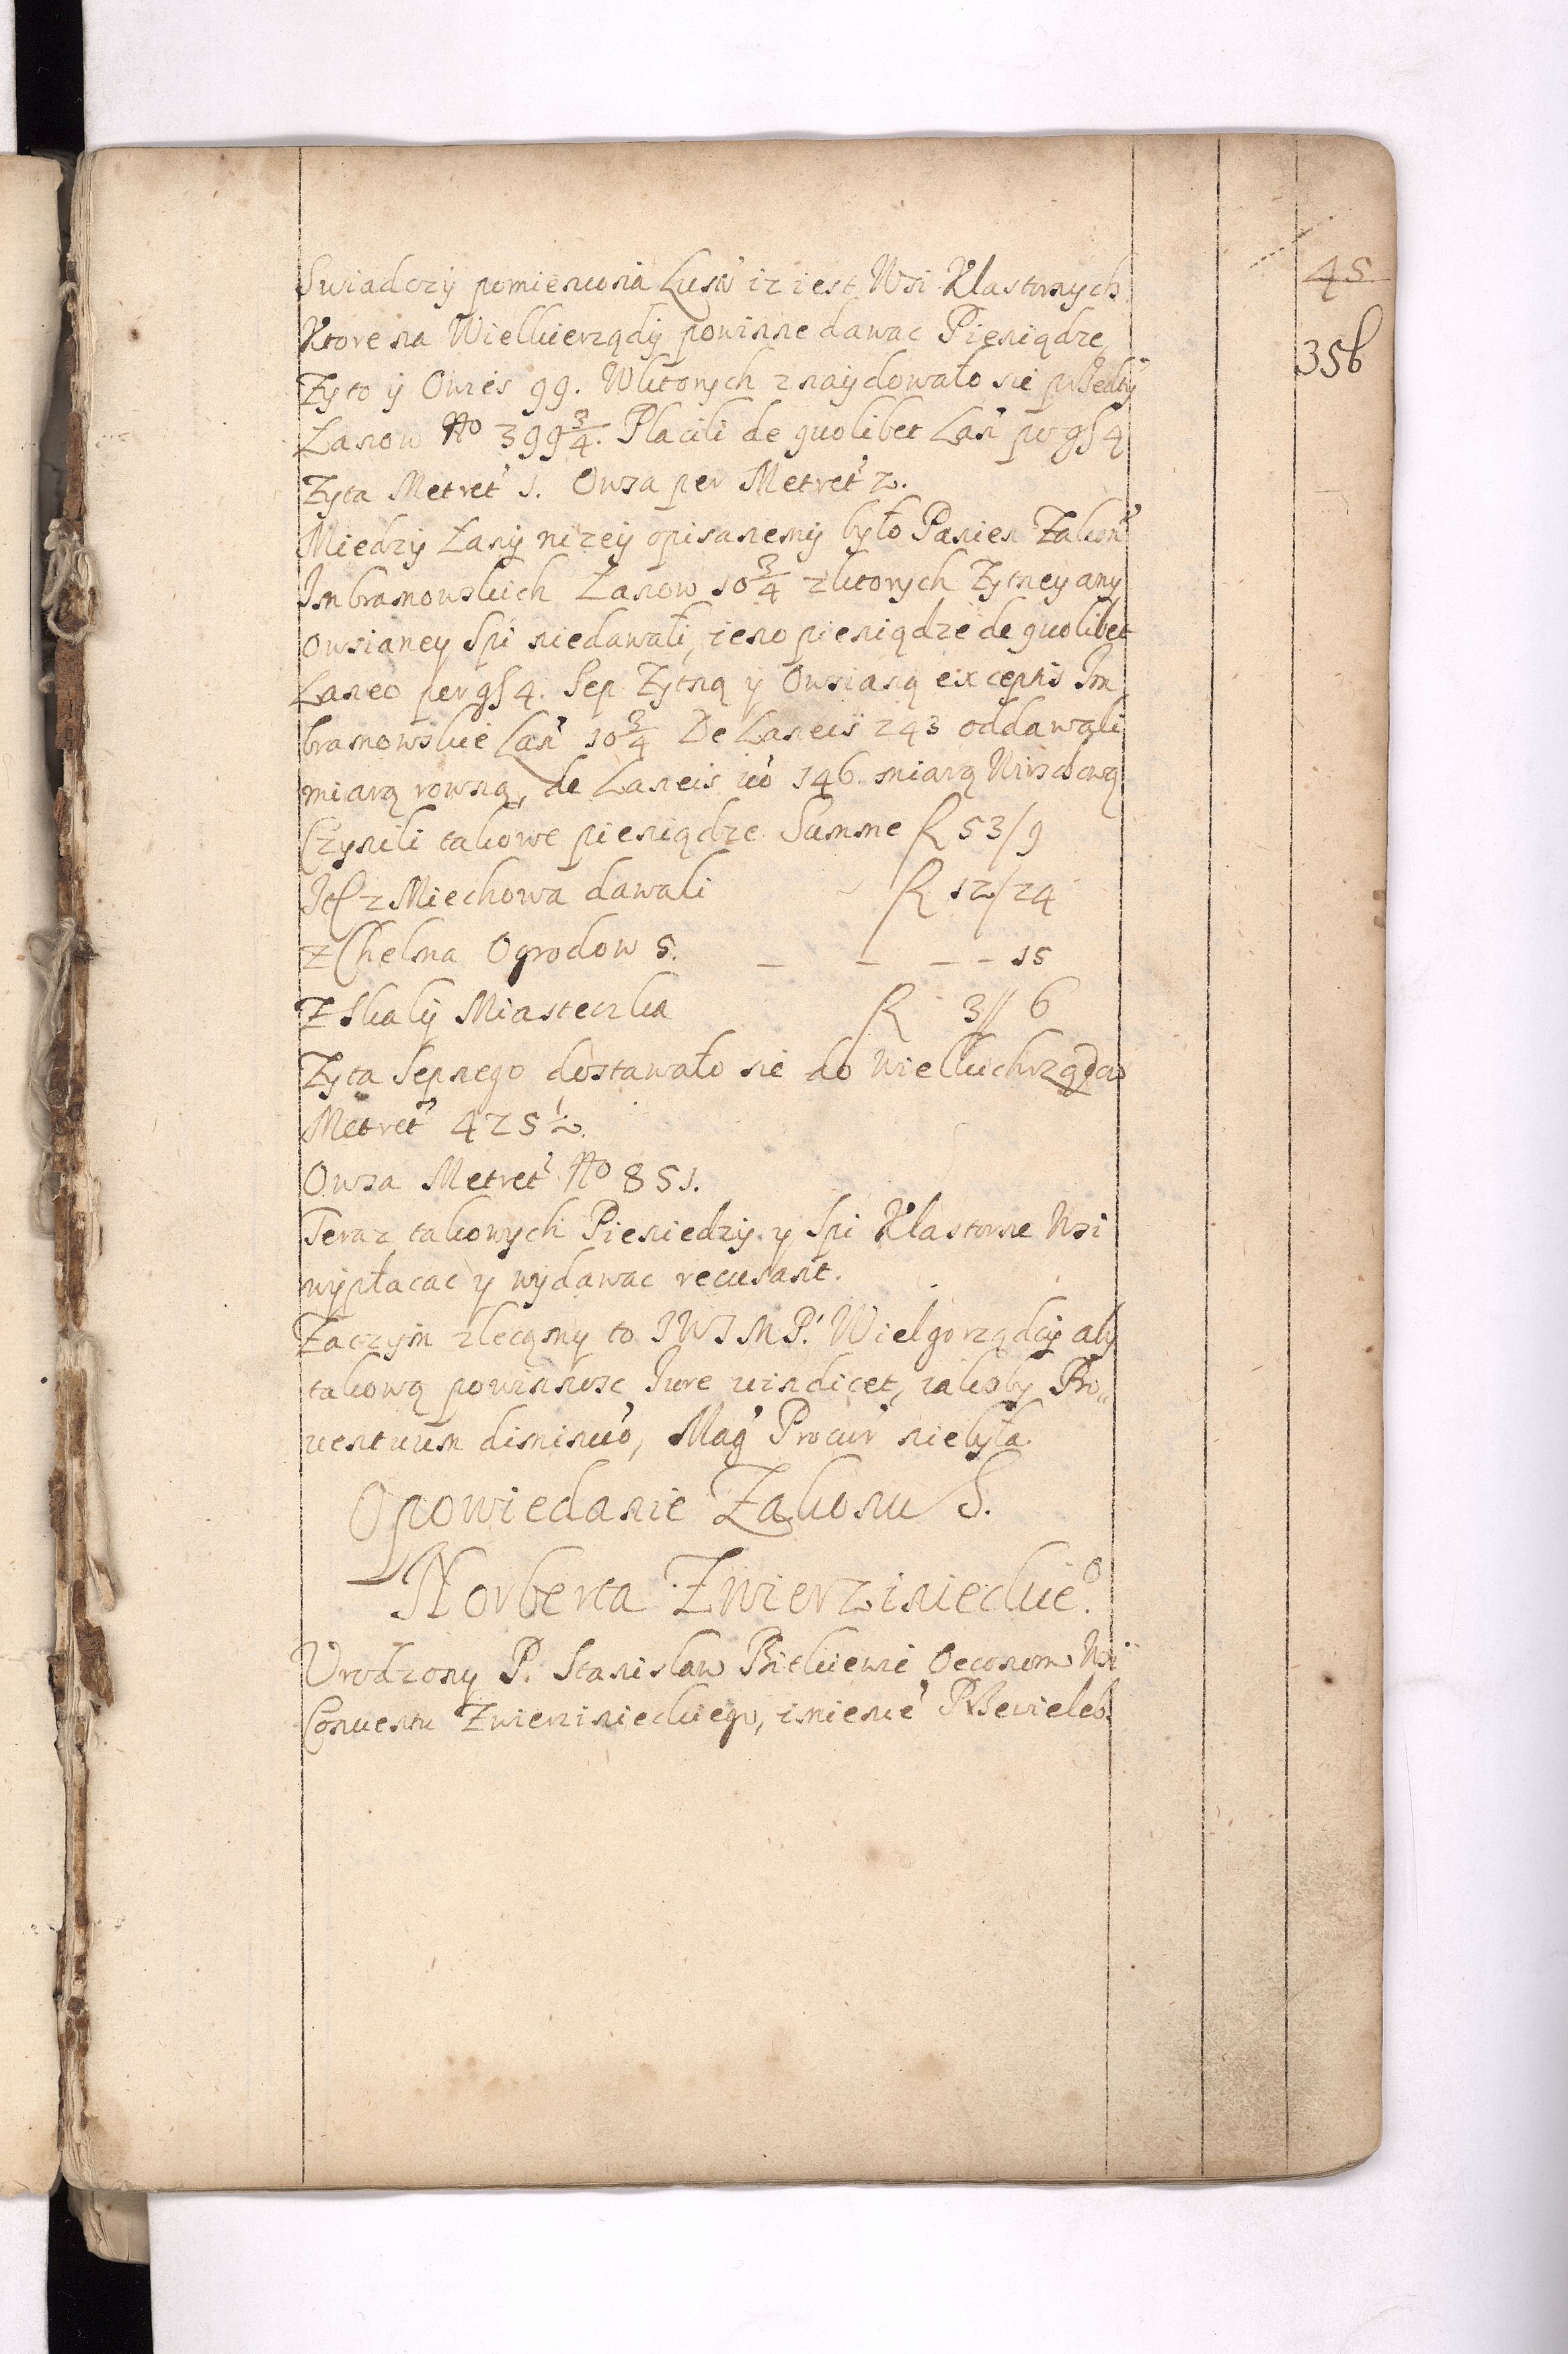 45
35b
Swiadczÿ pomieniona Lusť iz iest Wsi Klastornych
Ktore na Wielkierządÿ powinne dawac Pieniądze
Zÿto ÿ Owies 99. Wktorych znaÿdowało sie przedtÿ
Łanow No 399 3/4. Placili de quolibet Lan̄ per gs 4
Zyta Metret' 1. Owsa per Metret' 2.
Miedzÿ Łanÿ nizeÿ opisanemÿ było Panien Zakon'
Imbramowskich Łanow 10 3/4 zktorych Zytney any
owsianey Spi niedawali, ieno pieniądze de quolibet
Laneo per gs 4. Sep Zytną y Owsianą exceptis Im
bramowskie Lan' 10 3/4 De Laneis 243 oddawali
miarą rowną, de Laneis vo 146 miarą Wirzchową
Czynili takowe pieniądze Summe f 53/9
It z Miechowa dawali f 12/24
z Chelma Ogrodow 5. _ _ _ _ 15
Z Skalÿ Miasteczka f 3// 6
Zyta Sepnego dostawało sie do wielkichrządow
Metret' 425 1/2.
Owsa Metret' No 851.
Teraz takowych Pieniedzÿ y Spi Klastorne Wsi
wÿpłacac y wÿdawac recusant.
Zaczÿm zlecamy to JWJMP. Wielgorządcÿ abÿ
takową powinnosc Jure vindicet, iakoby Pro„
ventuum diminuo, Mag' Procur' niebyła.
Opowiedanie Zakonu S.
Norberta Zwierzinieckieo.
Vrodzony P. Stanislaw Oeconom Wsi
Conventu Zwierzinieckiego, imienie' Przewieleb.